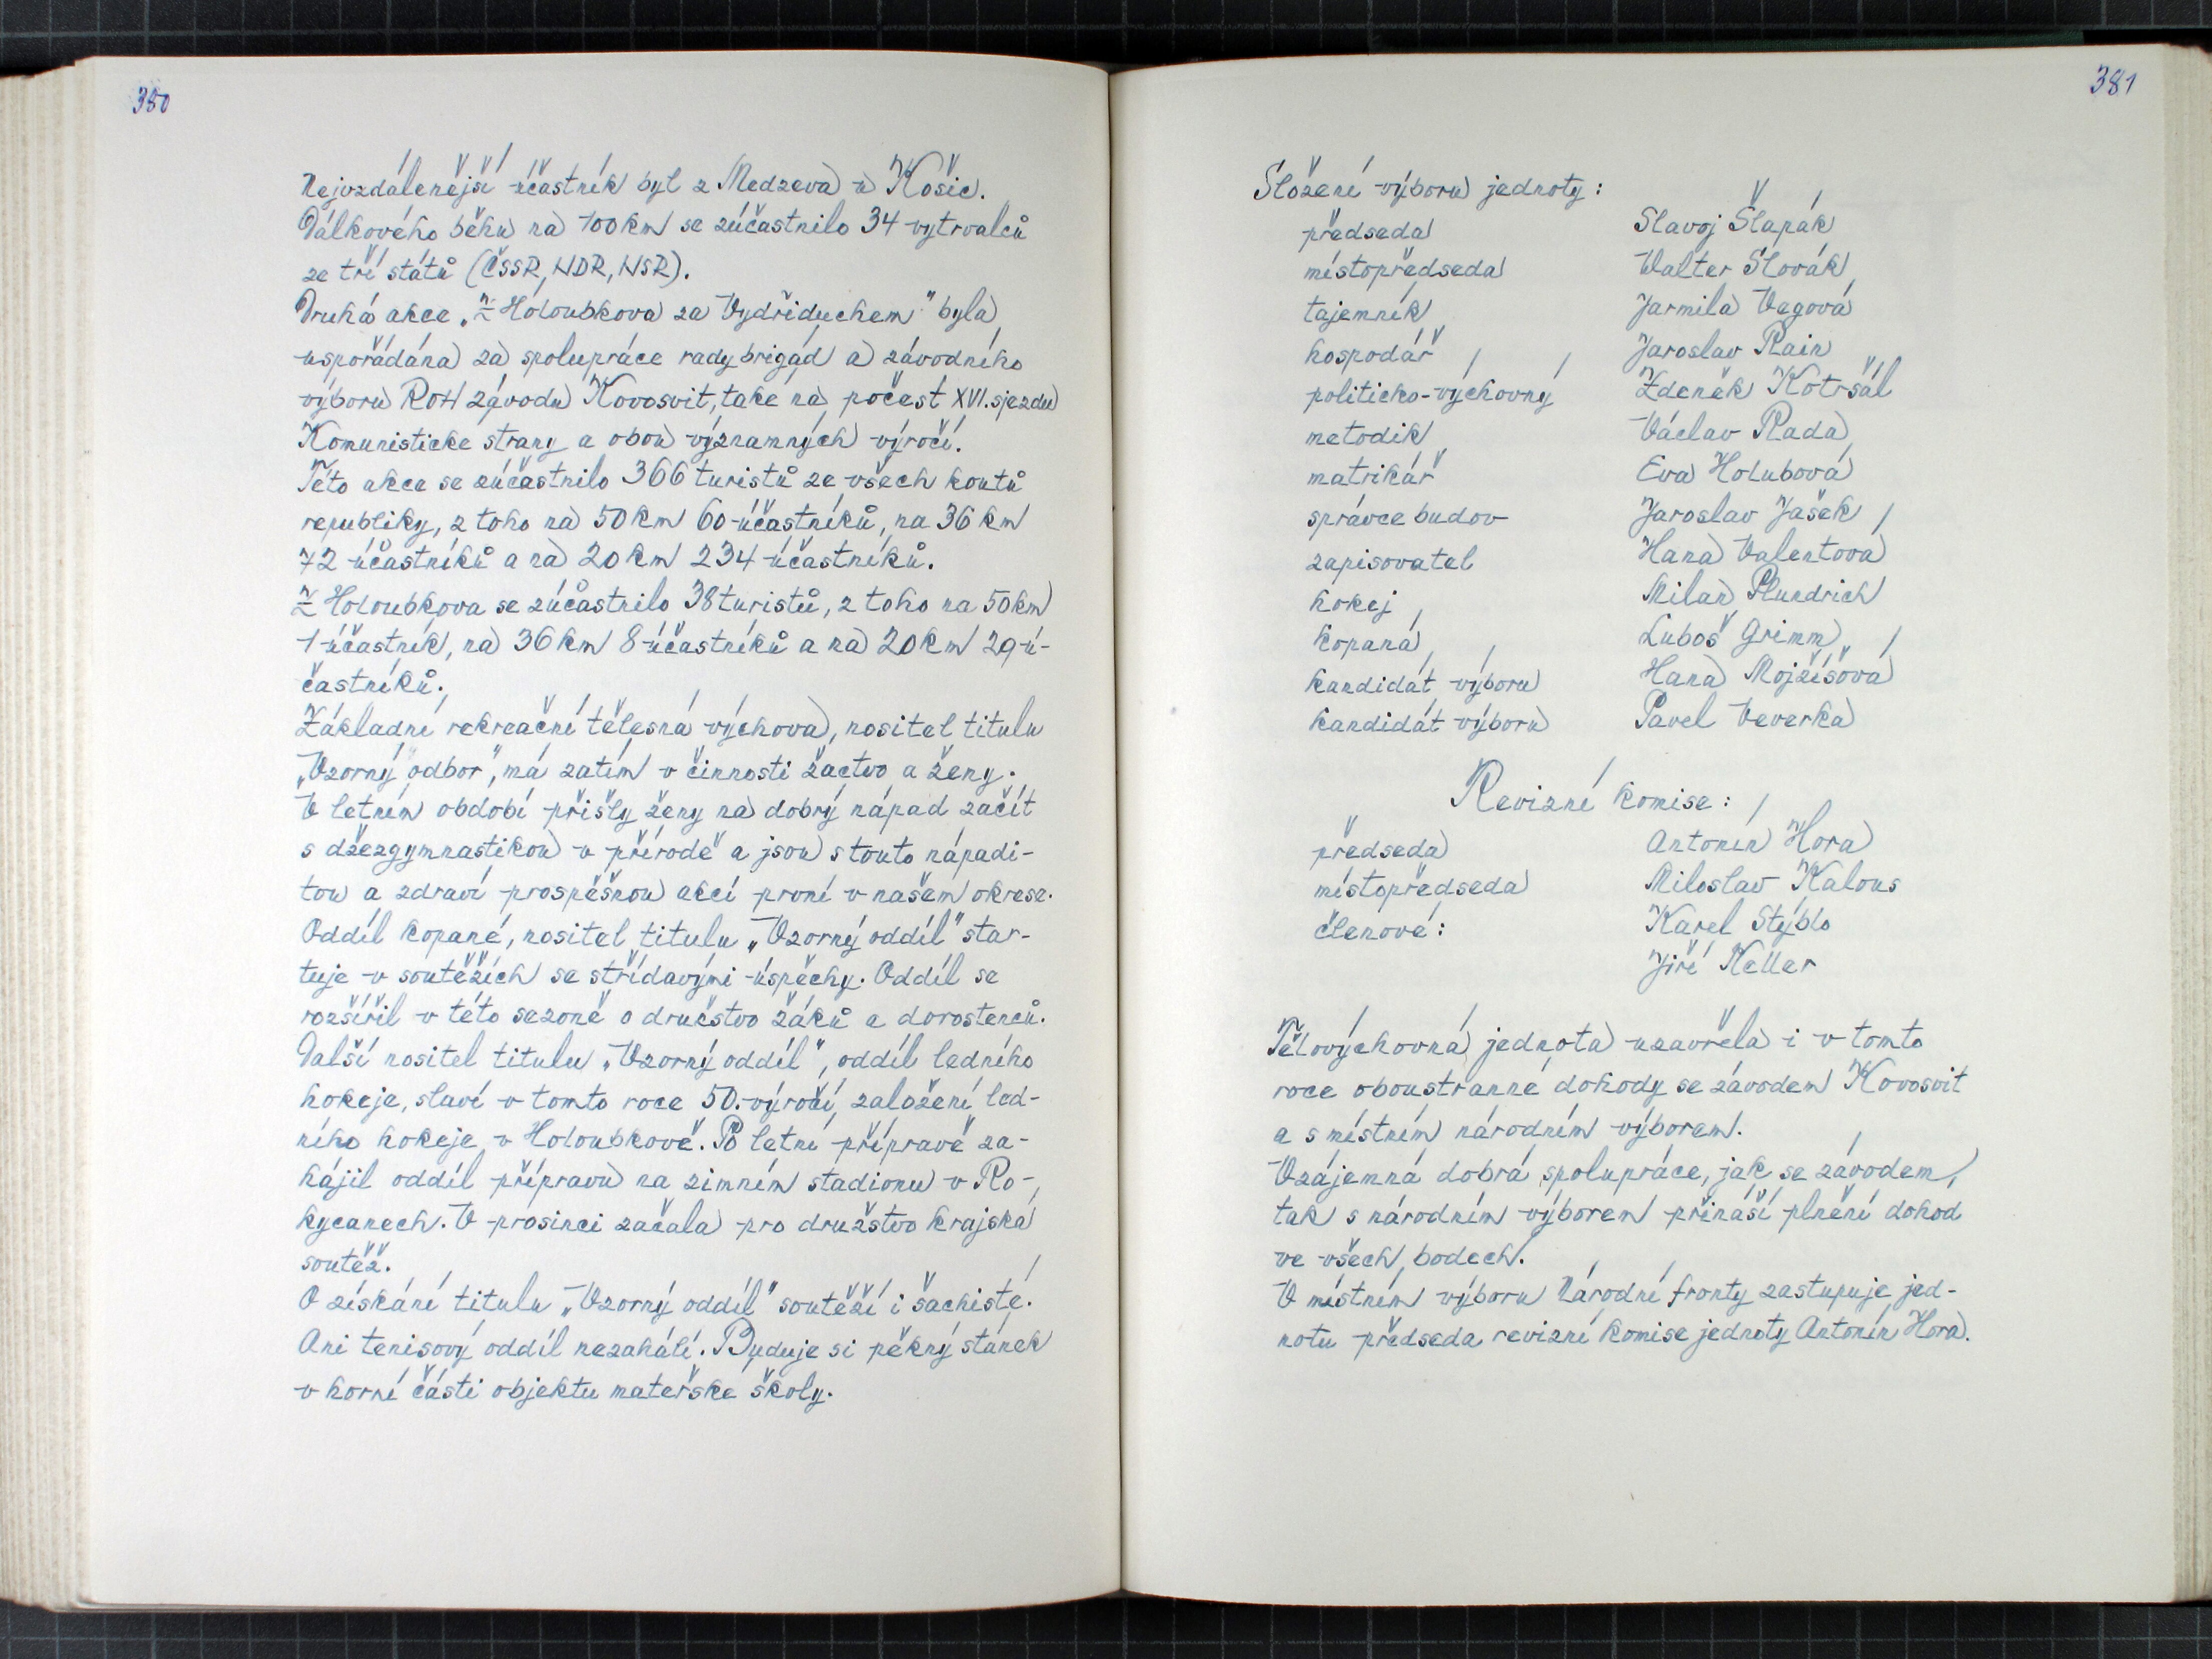 380
Nejvzdálenější účastník byl z Medzeva u Košic.
Dálkového běhu na 100 km se zúčastnilo 34 vytrvalců
ze tří států (ČSSR, NDR, NSR).
Druhá akce „Z Holoubkova za Vydřiduchem" byla
uspořádána za spolupráce rady brigád a závodního
výboru ROH závodu Kovosvit, také na počest XVI. sjezdu
Komunistické strany a obou významných výročí.
Této akce se zúčastnilo 366 turistů ze všech koutů
republiky, z toho na 50 km 60 účastníků, na 36 km
72 účastníků a na 20 km 234 účastníků.
Z Holoubkova se zúčastnilo 38 turistů, z toho na 50 km
1 účastník, na 36 km 8 účastníků a na 20 km 29 ú-
častníků.
Základní rekreační tělesná výchova, nositel titulu
„Vzorný odbor", má zatím v činnosti žactvo a ženy.
V letním období přišly ženy na dobrý nápad začít
s džezgymnastikou v přírodě a jsou s touto nápadi-
tou a zdraví prospěšnou akcí první v našem okrese.
Oddíl kopané, nositel titulu „Vzorný oddíl" star-
tuje v soutěžích se střídavými úspěchy. Oddíl se
rozšířil v této sezoně o družstvo žáků a dorostenců.
Další nositel titulu „Vzorný oddíl", oddíl ledního
hokeje, slaví v tomto roce 50. výročí založení led-
ního hokeje v Holoubkově. Po letní přípravě za-
hájil oddíl přípravu na zimním stadionu v Ro-
kycanech. V prosinci začala pro družstvo krajská
soutěž.
O získání titulu „Vzorný oddíl" soutěží i šachisté.
Ani tenisový oddíl nezahálí. Buduje si pěkný stánek
v horní části objektu mateřské školy.
381
Složení výboru jednoty:
předseda Slavoj Šlapák
místopředseda Walter Slovák
tajemník Jarmila Vágová
hospodář Jaroslav Rain
politicko-výchovný Zdeněk Kotršál
metodik Václav Rada
matrikář Eva Holubová
správce budov Jaroslav Jašek
zapisovatel Hana Valentová
hokej Milan Plundrich
kopaná Luboš Grimm
kandidát výboru Hana Mojžíšová
kandidát výboru Pavel Veverka
Revizní komise:
předseda Antonín Hora
místopředseda Miloslav Kalous
členové: Karel Stýblo
Jiří Keller
Tělovýchovná jednota uzavřela i v tomto
roce oboustranné dohody se závodem Kovosvit
a s místním národním výborem.
Vzájemná dobrá spolupráce, jak se závodem,
tak s národním výborem přináší plnění dohod
ve všech bodech.
V místním výboru Národní fronty zastupuje jed-
notu předseda revizní komise jednoty Antonín Hora.